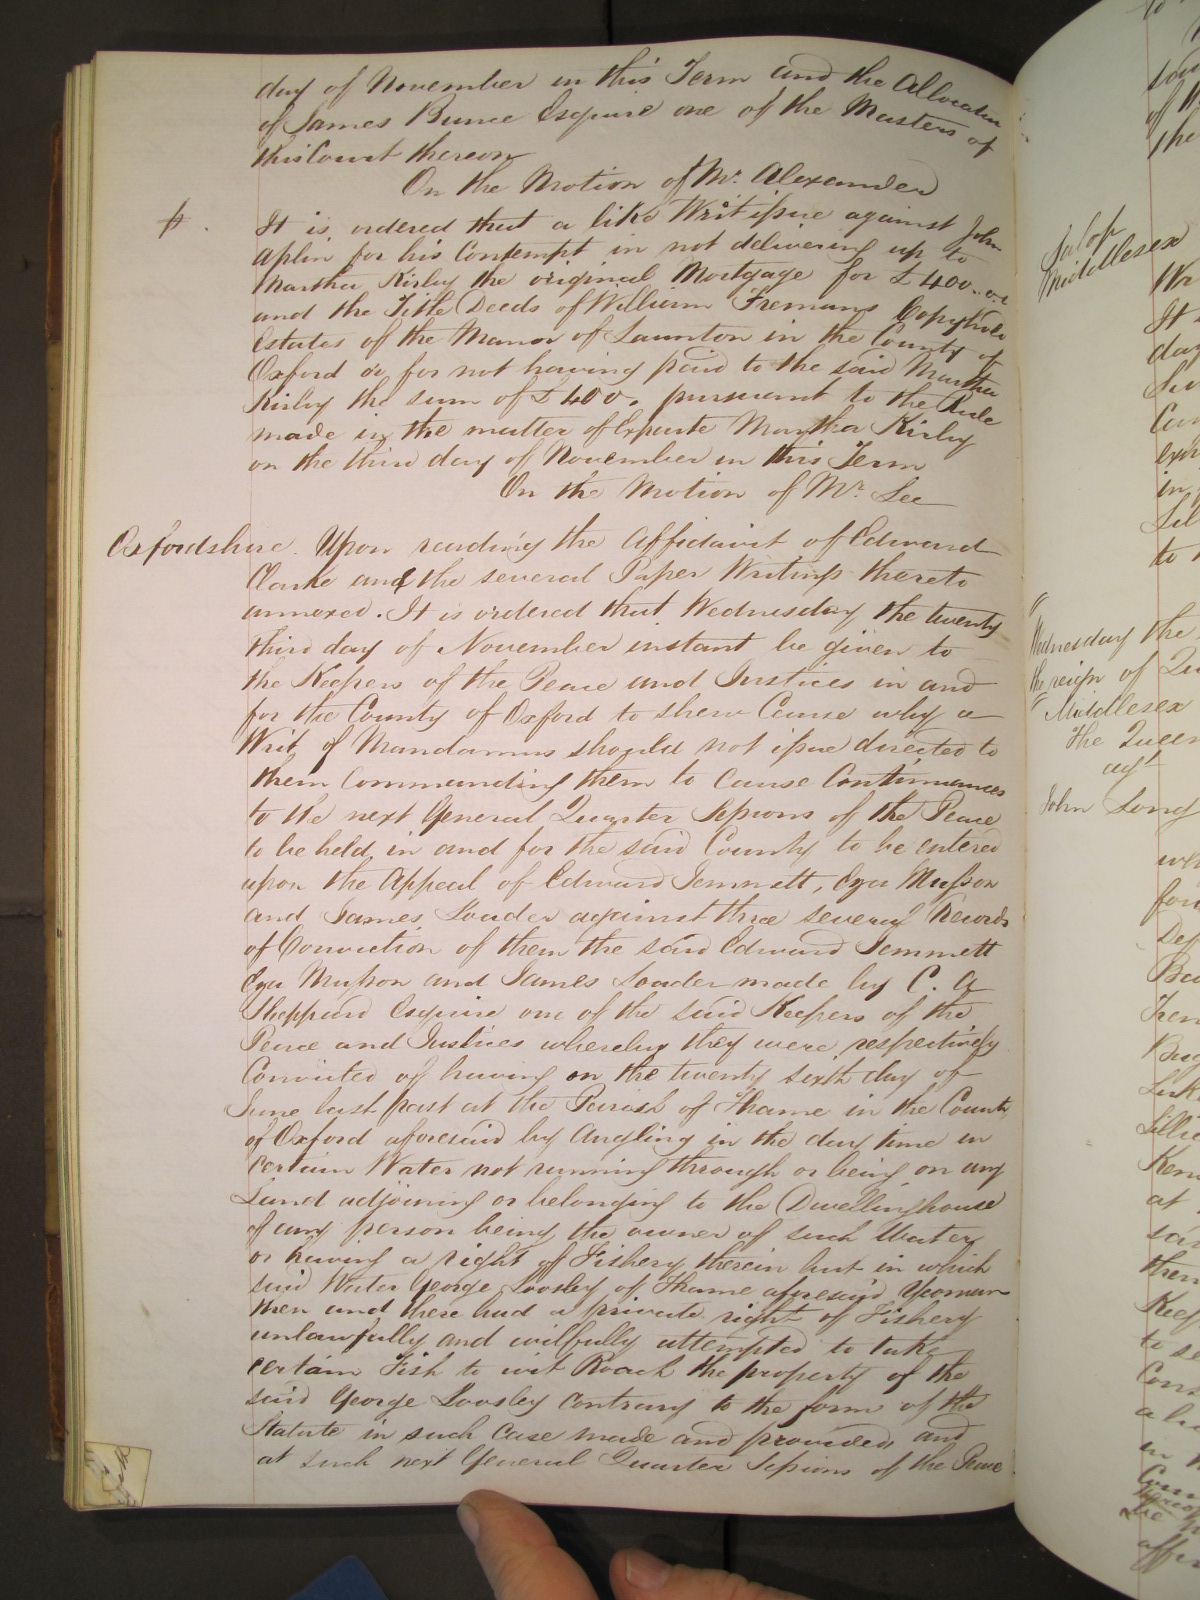 day of November in this Term and the Allocatur
of James Bunce Esquire one of the Masters of
this Court thereon
On the Motion of Mr. Alexander
It is ordered that a like Writ issue against John
Aplin for his Contempt in not delivering up to
Martha Kirby the original Mortgage for £400..
and the Title Deeds of William Fremans Copyhold
Estates of the Manor of Launton in the County of
Oxford or for not having paid to the said Martha
Kirby the sum of £400. pursuant to the Rule
made in the matter of Exparte Martha Kirby
on the third day of November in this Term
On the Motion of Mr. Lee
Oxfordshire. Upon reading the Affidavit of Edward
Clarke and the several Paper Writings thereto
annexed. It is ordered that Wednesday the twenty
third day of November instant be given to
the Keepers of the Peace and Justices in and
for the County of Oxford to shew Cause why a
Writ of Mandamus should not issue directed to
them Commanding them to cause Continuances
to the next General Quarter Sessions of the Peace
to be held in and for the said County to be entered
upon the Appeal of Edward Jemmett, Eza Musson
and James Loader against three several Records
of Conviction of them the said Edward Jemmett
Eza Musson and James Loader made by C. A
Sheppard Esquire one of the said Keepers of the
Peace and Justices whereby they were respectively
Convicted of having on the twenty sixth day of
June last past at the Parish of Thame in the County
of Oxford aforesaid by Angling in the day time in
certain Water not running through or being on any
Land adjoining or belonging to the Dwellinghouse
of any person being the owner of such Water
or having a right of Fishery therein but in which
said Water George Loosley of Thame aforesaid Yeoman
then and there had a private right of Fishery
unlawfully and wilfully attempted to take
certain Fish to wit Roach the property of the
said George Loosley contrary to the form of the
Statute in such case made and provided, and
at such next General Quarter Sessions of the Peace
Salop
Middlesex
Wednesday the
the reign of
Middlesex
The Queen
agt
John Long